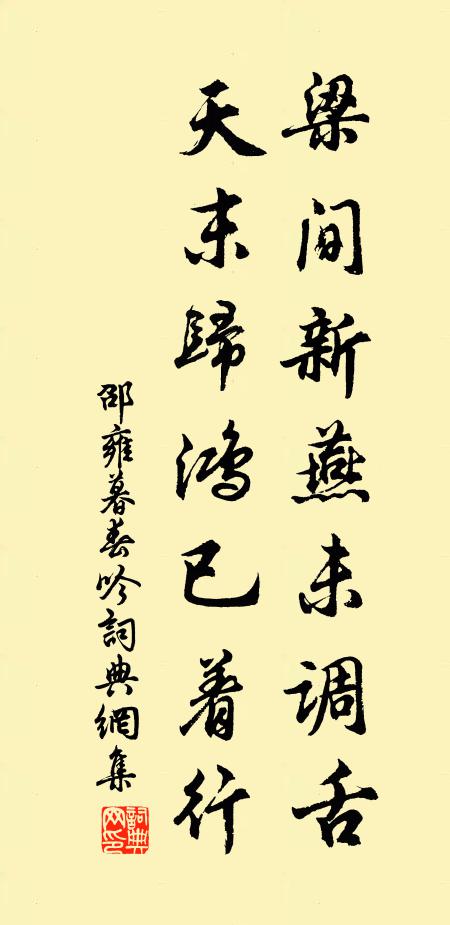 梁间新燕未調舌
天末歸鴻已着行
邵雍暮春吟詞典網集
詞典网印